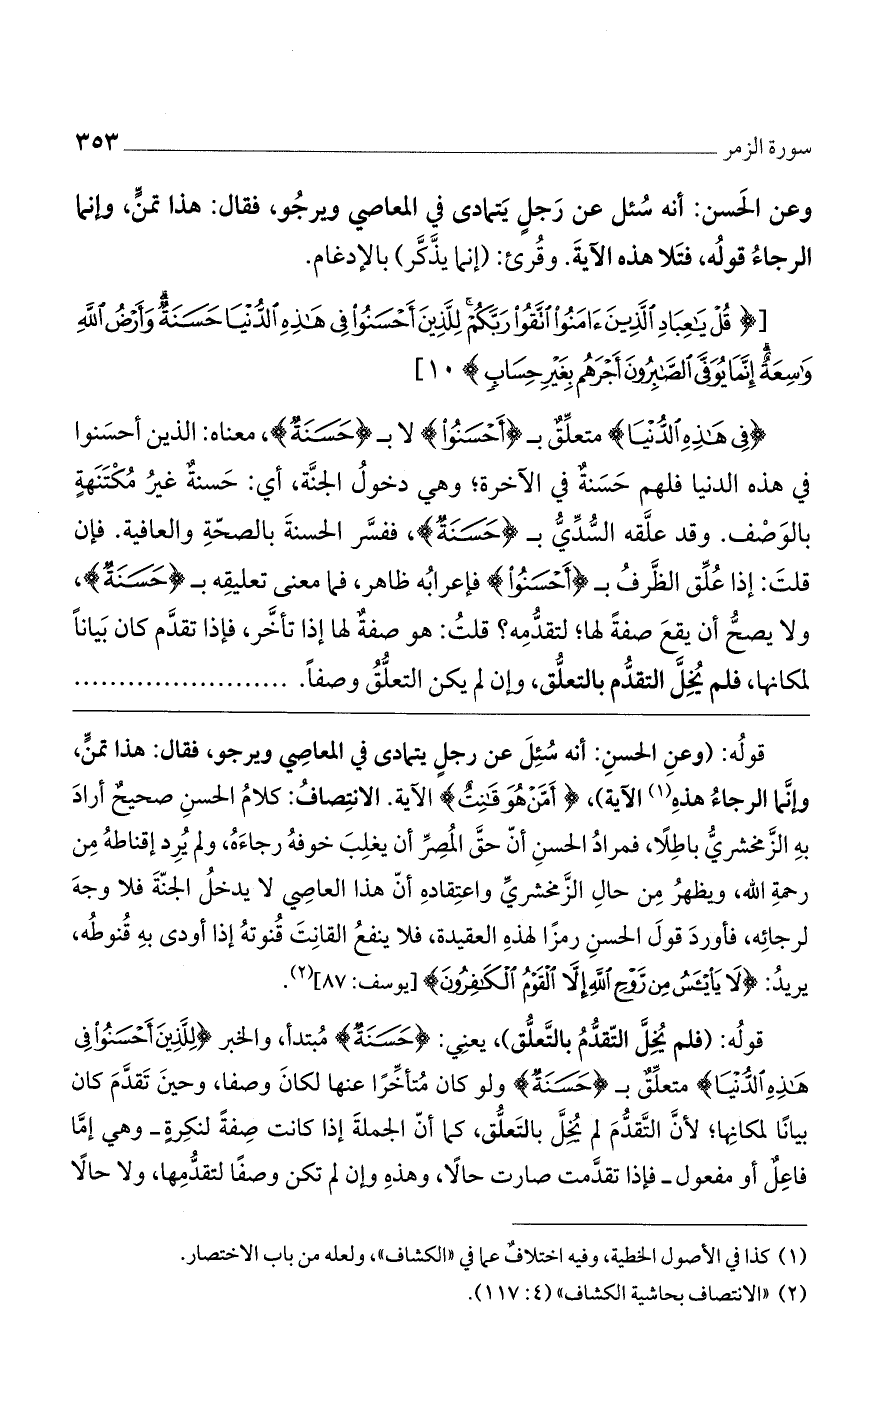 سورة الزمر ٣٥٣
وعن الحَسن: أنه سُئل عن رَجلٍ يَتمادى في المعاصي ويرجُو، فقال: هذا تمنٍّ، وإنما
الرجاءُ قولُه، فتَلا هذه الآيةَ. وقُرئ: (إنما يذَّكَّر) بالإدغام.
[﴿ قُلْ يَٰعِبَادِ ٱلَّذِينَ ءَامَنُوا۟ ٱتَّقُوا۟ رَبَّكُمْ ۚ لِلَّذِينَ أَحْسَنُوا۟ فِى هَٰذِهِ ٱلدُّنْيَا حَسَنَةٌ ۗ وَأَرْضُ ٱللَّهِ
وَٰسِعَةٌ ۗ إِنَّمَا يُوَفَّى ٱلصَّٰبِرُونَ أَجْرَهُم بِغَيْرِ حِسَابٍ ﴾ ١٠]
﴿فِى هَٰذِهِ ٱلدُّنْيَا﴾ متعلِّقٌ بـ ﴿أَحْسَنُوا۟﴾ لا بـ ﴿حَسَنَةٌ﴾، معناه: الذين أحسَنوا
في هذه الدنيا فلهم حَسَنةٌ في الآخرة؛ وهي دخولُ الجنَّة، أي: حَسنةٌ غيرُ مُكْتَنَهةٍ
بالوَصْف. وقد علَّقه السُّدِّيُّ بـ ﴿حَسَنَةٌ﴾، ففسَّر الحسنةَ بالصحّةِ والعافية. فإن
قلتَ: إذا عُلِّق الظَّرفُ بـ ﴿أَحْسَنُوا۟﴾ فإعرابُه ظاهر، فما معنى تعليقِه بـ ﴿حَسَنَةٌ﴾،
ولا يصحُّ أن يقعَ صفةً لها؛ لتقدُّمِه؟ قلتُ: هو صفةٌ لها إذا تأخَّر، فإذا تقدَّم كان بَياناً
لمكانها، فلم يُخِلَّ التقدُّم بالتعلُّق، وإن لم يكن التعلُّقُ وصفاً. ........................
قولُه: (وعنِ الحسنِ: أنه سُئِلَ عن رجلٍ يتمادى في المعاصِي ويرجو، فقال: هذا تمنٍّ،
وإنَّما الرجاءُ هذهِ(١) الآية)، ﴿ أَمَّنْ هُوَ قَٰنِتٌ﴾ الآية. الانتِصافُ: كلامُ الحسنِ صحيحٌ أرادَ
بهِ الزَّمخشريُّ باطِلًا، فمرادُ الحسنِ أنّ حقَّ المُصِرِّ أن يغلِبَ خوفهُ رجاءَهُ، ولم يُرِد إقناطهُ مِن
رحمةِ الله، ويظهرُ مِن حالِ الزَّمخشريِّ واعتِقادهِ أنّ هذا العاصِي لا يدخلُ الجنّةَ فلا وجهَ
لرجائِه، فأوردَ قولَ الحسنِ رمزًا لهذهِ العقيدة، فلا ينفعُ القانِتَ قُنوتهُ إذا أودى بهِ قُنوطُه،
يريدُ: ﴿لَا يَا۟يْـَٔسُ مِن رَّوْحِ ٱللَّهِ إِلَّا ٱلْقَوْمُ ٱلْكَٰفِرُونَ﴾ [يوسف: ٨٧](٢).
قولُه: (فلم يُخِلَّ التّقدُّمُ بالتَّعلُّق)، يعنِي: ﴿حَسَنَةٌ﴾ مُبتدأ، والخبر ﴿لِلَّذِينَ أَحْسَنُوا۟ فِى
هَٰذِهِ ٱلدُّنْيَا﴾ متعلِّقٌ بـ ﴿حَسَنَةٌ﴾ ولو كان مُتأخِّرًا عنها لكانَ وصفا، وحينَ تَقدَّمَ كان
بيانًا لمكانِها؛ لأنَّ التَّقدُّمَ لم يُخِلَّ بالتَعلُّق، كما أنّ الجملةَ إذا كانت صِفةً لنكِرةٍ ـ وهي إمَّا
فاعِلٌ أو مفعول ـ فإذا تقدَّمت صارت حالًا، وهذهِ وإن لم تكن وصفًا لتقدُّمِها، ولا حالًا
(١) كذا في الأصول الخطية، وفيه اختلافٌ عما في «الكشاف»، ولعله من باب الاختصار.
(٢) «الانتصاف بحاشية الكشاف» (٤: ١١٧).